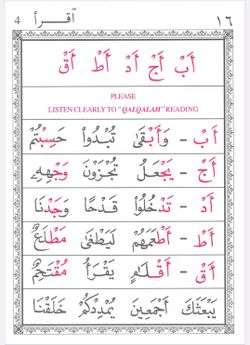 ١٦ اقرأ 4
أَبْ أَجْ أَدْ أَطْ أَقْ
PLEASE
LISTEN CLEARLY TO "QALQALAH" READING
أَبْ - وَأَبْقَىٰ تُبْدُوا۟ حَسِبْتُمْ
أَجْ - يَجْعَلُ تُجْزَوْنَ وَجْهِهِۦ
أَدْ - تَدْخُلُوا۟ قَدْحًا وَجَدْنَا
أَطْ - أَطْعَمَهُمْ لَيَطْغَىٰ مَطْلَعِ
أَقْ - أَقْلَـٰمٌ يَقْرَأُ مُقْتَحِمٌ
يَبْعَثُكَ أَجْمَعِينَ يُمْدِدْكُمْ خَلَقْنَا